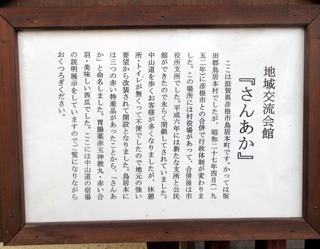 地域交流会館
『さんあか』
ここは滋賀県彦根市鳥居本町です。かつては坂
田郡鳥居本村でしたが、昭和二十七年四月(一九
五二年)に彦根市との合併で行政体制が変わりま
した。この場所には村役場があって、合併後は市
役所支所でした。平成六年には新たな支所と公民
館ができたので永らく閉鎖してされていました。
中山道を歩くお客様が多くなりましたが、休憩
所・トイレが無くって不便でしたので地元の強い
要望から改装されて開設となりました。鳥居本に
は三つの赤い特産品があったことから、「さんあ
か」と命名しました。胃腸薬赤玉神教丸・赤い合
羽・美味しい西瓜でした。ここには中山道の宿場
の説明展示をしていますのでご覧になりながら
おくつろぎください。